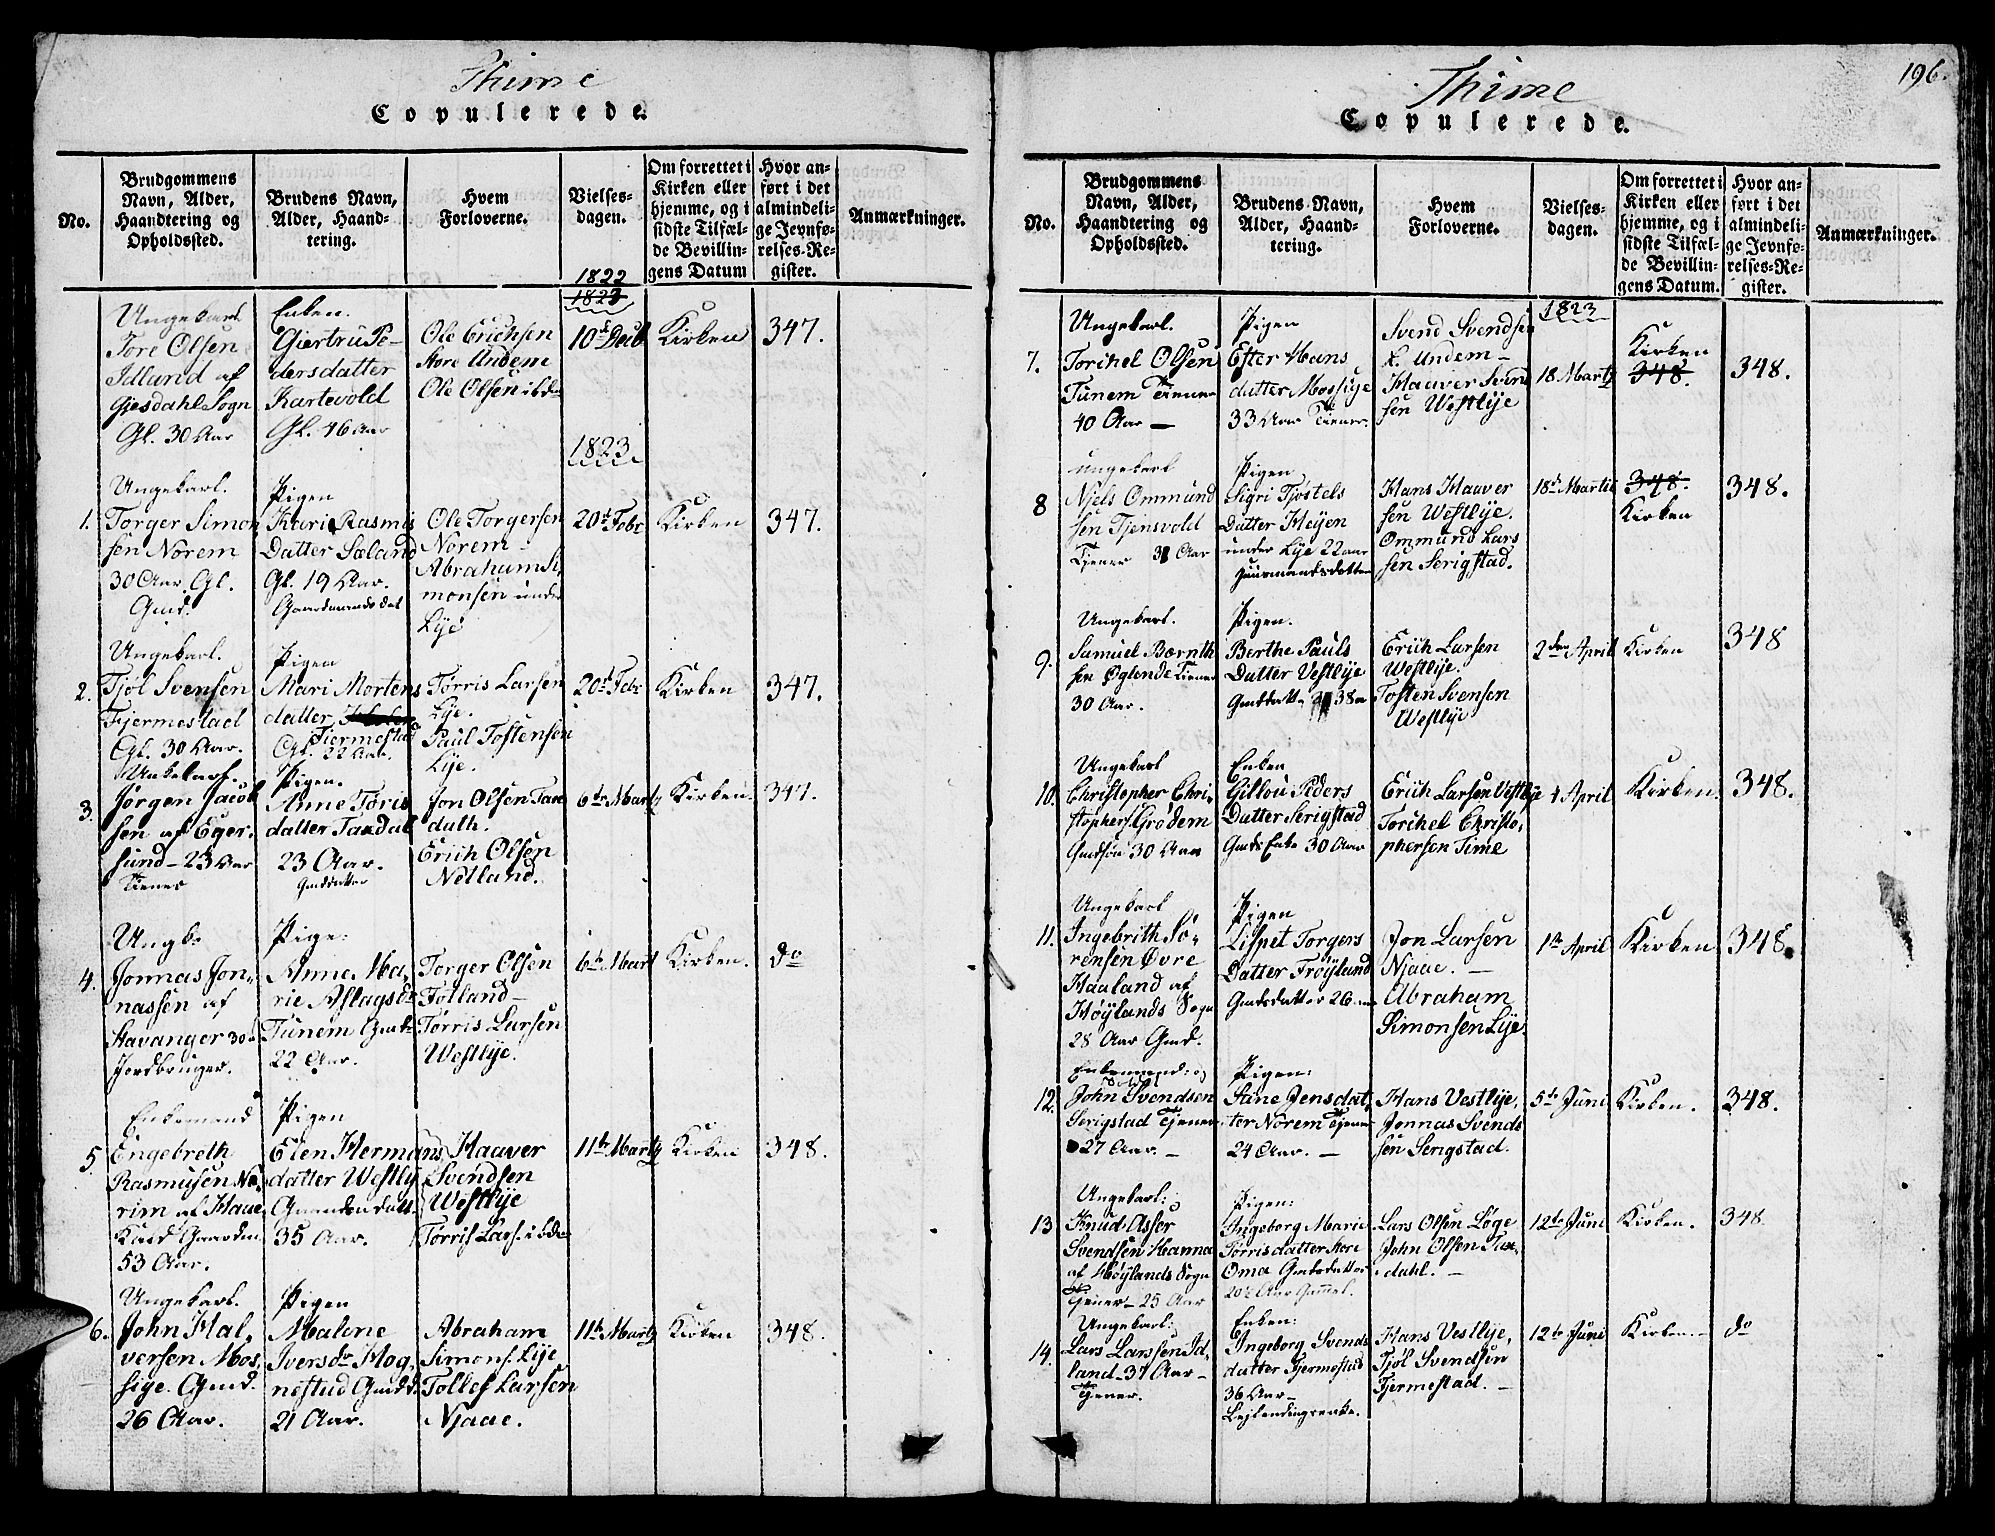 Thime
Copulerede.
No.
Brudgommens Navn, Alder, Haandtering og Opholdssted.
Brudens Navn, Alder, Haandtering.
Hvem Forloverne.
Vielsesdagen.
Om forrettet i Kirken eller hjemme, og i sidste Tilfælde Bevillingens Datum
Hvor anført i det almindelige Jevnførelses-Register.
Anmærkninger.
1822
1823
Ungekarl
Tore Olsen
Idland af
Gjesdahl Sogn
Gl. 30 Aar
Enken.
Giertru Pe-
dersdatter
Kartevold
Gl. 46 Aar
Ole Erichsen
store Undem
Ole Olsen ibd
10d Decb
Kirken
347.
1823
1.
Ungekarl.
Torger Simon
sen Norem
30 Aar. Gl.
Gmd.
Pigen
Kari Rasmis
Datter Sæland
Gl. 19 Aar.
Gaardmands dat
Ole Torgersen
Norem-
Abraham Si
monsen under
Lye
20d Febr
Kirken
347.
2.
Ungekarl.
Tjøl Svensen
Fjermestad
Gl. 30 Aar.
Pigen
Mari Mortens
datter
Fiermestad
Gl. 22 Aar.
Tørris Larsen
Lye.
Paul Tostensen
Lye.
20d Febr
Kirken
347.
3.
Ungkarl.
Jørgen Jacob
sen af Eger-
sund- 23 Aar
Tiener
Pigen.
Anne Toris
datter Taxdal
23 Aar.
Gmdsdatter
Jon Olsen Tax
dalh.
Erich Olsen
Netland.
6te Marty
Kirken.
347.
4.
Ungk.
Jonnas Jon-
nassen af
Stavanger 30 a
Jordbruger.
Pige:
Anne Ma,
rie Aslagsdr
Tunem Gmd.
22 Aar.
Torger Olsen
Folland-
Tørris Larsen
Westlye.
6te Mart
Kirken.
do
5.
Enkemand
Engebreth
Rasmusen Na,
rim af Haae
Kald Gaardm
53 Aar.
Pigen
Elen Hermans
datter Westly
Gaardm datt.
35 Aar.
Haaver
Svendsen
Westlye
Tørris Lars. ibd
11te Marty
Kirken
348.
6.
Ungekarl.
John Hal,
versen Mos,
sige. Gmd.
26 Aar.
Pigen
Malene
Iversdr Hog,
nestad Gmdd.
21 Aar.
Abraham
Simons. Lye
Tollef Larsen
Njaae.
11te Marty
Kirken
348.
196.
Thime
Copulerede.
No.
Brudgommens Navn, Alder, Haandtering og Opholdssted.
Brudens Navn, Alder, Haandtering.
Hvem Forloverne.
Vielsesdagen.
Om forrettet i Kirken eller hjemme, og i sidste Tilfælde Bevillingens Datum.
Hvor anført i det almindelige Jevnførelses-Register.
Anmærkninger.
1823
7.
Ungekarl.
Torchel Olsen
Tunem Tiener
40 Aar —
Pigen
Ester Hans
datter Mossige
33 Aar Tiener.
Svend Svendsen
L. Undem-
Haaver Svend
sen Westlye
18 Marty
Kirken
348.
348.
8
Ungekarl
Njels Ommund
sen Tjensvold
Tjener 31 Aar
Pigen
Sigri Tjøstels
Datter Heyen
under Lye 22 aar
Huusmandsdatter
Hans Haaver
sen Westlye.
Ommund Lars
sen Serigstad.
18d Martii
348.
Kirken
348.
9.
Ungekarl.
Samuel Bærnth
sen Øglende Tiener
30 Aar.
Pigen.
Berthe Pauls
Datter Vestlye
Gmdsdatter 38 a
Erich Larsen
Westlye.
Tosten Svensen
Westlye
2den April
Kirken
348
10.
Ungekarl
Christopher Chri-
stophers. Grødem
Gmdsøn 30 Aar
Enken
Gitlou Peders
Datter Serigstad
Gmds Enke 30 Aar
Erich Larsen Vestlye
Torchel Christo,
phersen Time
4 April
Kirken.
348.
11.
Ungekarl
Ingebrith Sø,
rensen Øvre
Haaland af
Høylands Sogn
28 Aar Gmd.
Pigen
Lispet Torgers
Datter Frøyland
Gmdsdatter 26
Jon Larsen
Njaae. —
Abraham
Simonsen Lye
1te April
Kirken
348.
12.
Enkemand: og
John Svendsen
Serigstad Tjener
27 Aar. —
Pigen:
Stine Jensdat,
ter Norem Tjener
24 Aar. —
Hans Vestlye.
Jonnas Svends
sen Serigstad.
5te Juni
Kirken.
348.
13
Ungekarl:
Knud Asser
Svendsen Hanna
af Høylands Sogn
Tjener- 25 Aar
Pigen:
Ingeborg Marie
Tørrisdatter store
Oma Gmdsdatter
20½ Aar Gammel.
Lars Olsen Løge
John Olsen Tax,
dahl. —
12te Juni
Kirken.
348.
14.
Ungekarl:
Lars Larssen Id,
land- 37 Aar-
Tjener.
Enken:
Ingeborg Svends
datter Fjermestad
36 Aar-
Lejlendingsenke.
Hans Vestlye,
Tjøl Svendsen
Fjermestad. —
12te Juni
Kirken.-
do